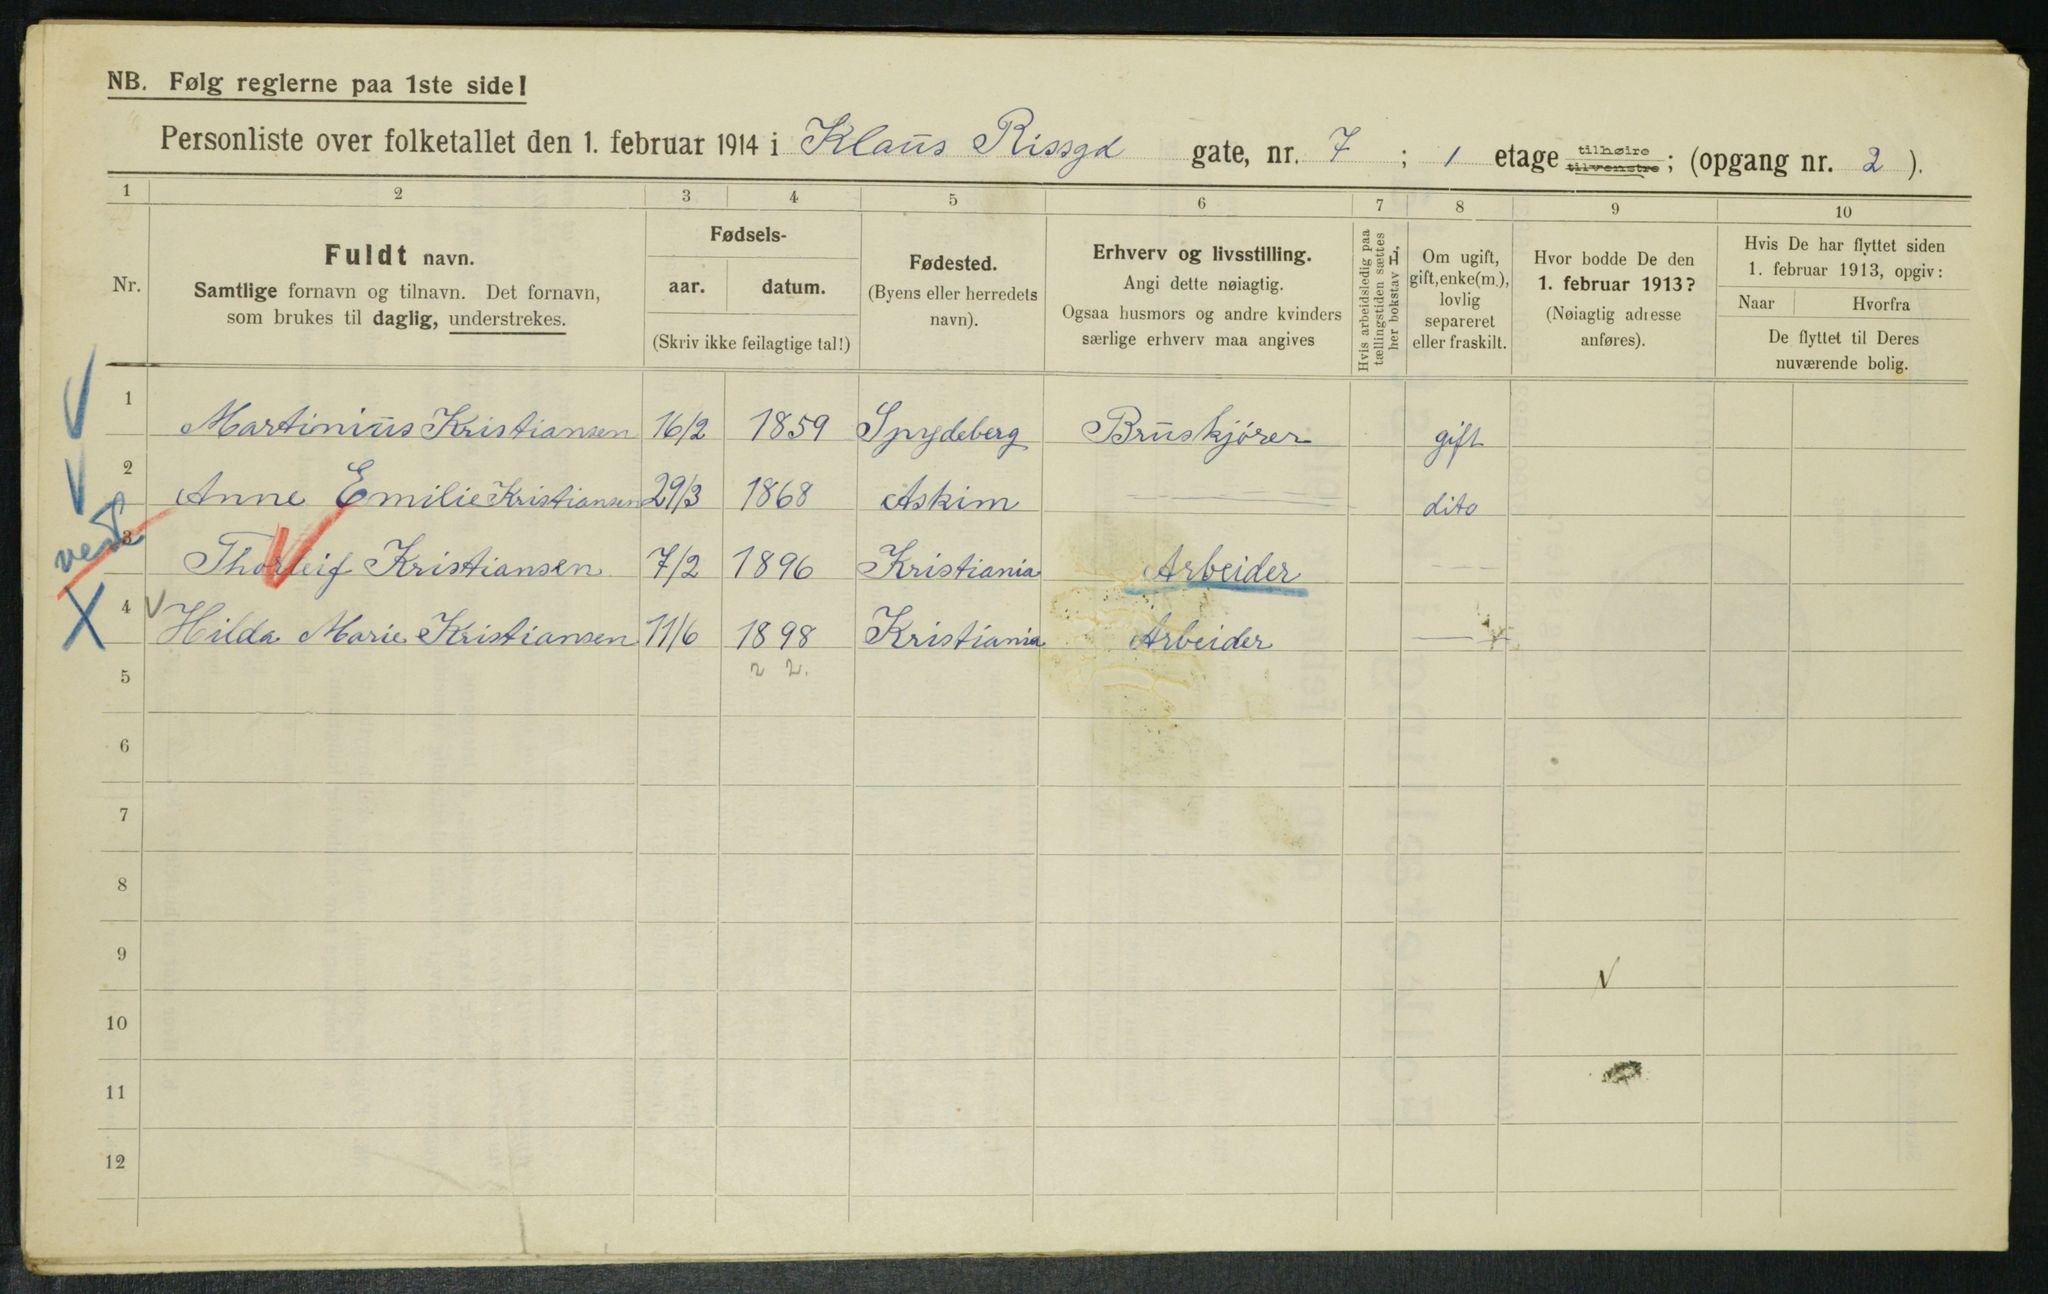 NB. Følg reglerne paa 1ste side!
Personliste over folketallet den 1. februar 1914 i Klaus Rissgd gate, nr. 7 ; 1 etage tilhøire tilvenstre ; (opgang nr. 2 ).
1 2 3 4 5 6 7 8 9 10
Nr.
Fuldt navn.
Samtlige fornavn og tilnavn. Det fornavn,
som brukes til daglig, understrekes.
Fødsels-
aar. datum.
(Skriv ikke feilagtige tal!)
Fødested.
(Byens eller herredets
navn).
Erhverv og livsstilling.
Angi dette nøiagtig.
Ogsaa husmors og andre kvinders
særlige erhverv maa angives
Hvis arbeidsledig paa
tællingstiden sættes
her bokstav L,
Om ugift,
gift, enke(m.),
lovlig
separeret
eller fraskilt.
Hvor bodde De den
1. februar 1913?
(Nøiagtig adresse
anføres).
Hvis De har flyttet siden
1. februar 1913, opgiv:
Naar Hvorfra
De flyttet til Deres
nuværende bolig.
1 Martinius Kristiansen 16/2 1859 Spydeberg Bruskjører gift
2 Anne Emilie Kristiansen 29/3 1868 Askim — — — — dito
vest
3 Thorleif Kristiansen 7/2 1896 Kristiania Arbeider - - - -
4 Hilda Marie Kristiansen 11/6 1898 Kristiania Arbeider — — —
2 2.
5
6
7
8
9
10
11
12